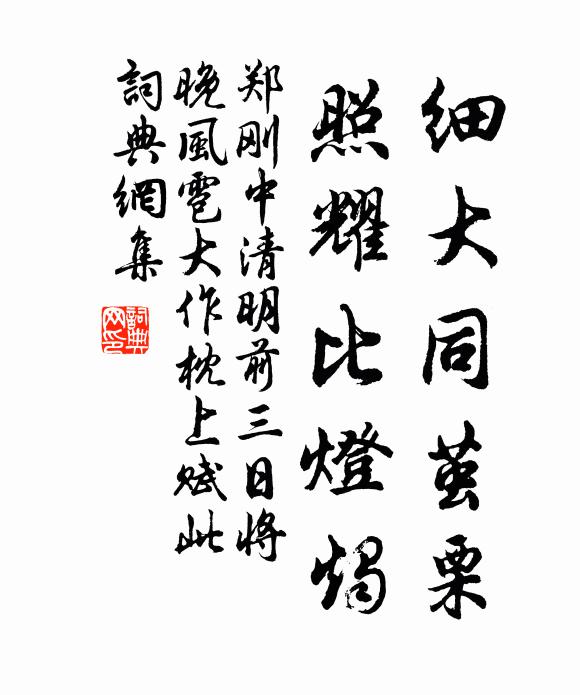 细大同茧栗
照耀比燈燭
郑刚中清明前三日将
晚風雹大作枕上赋此
詞典網集
詞典
网印